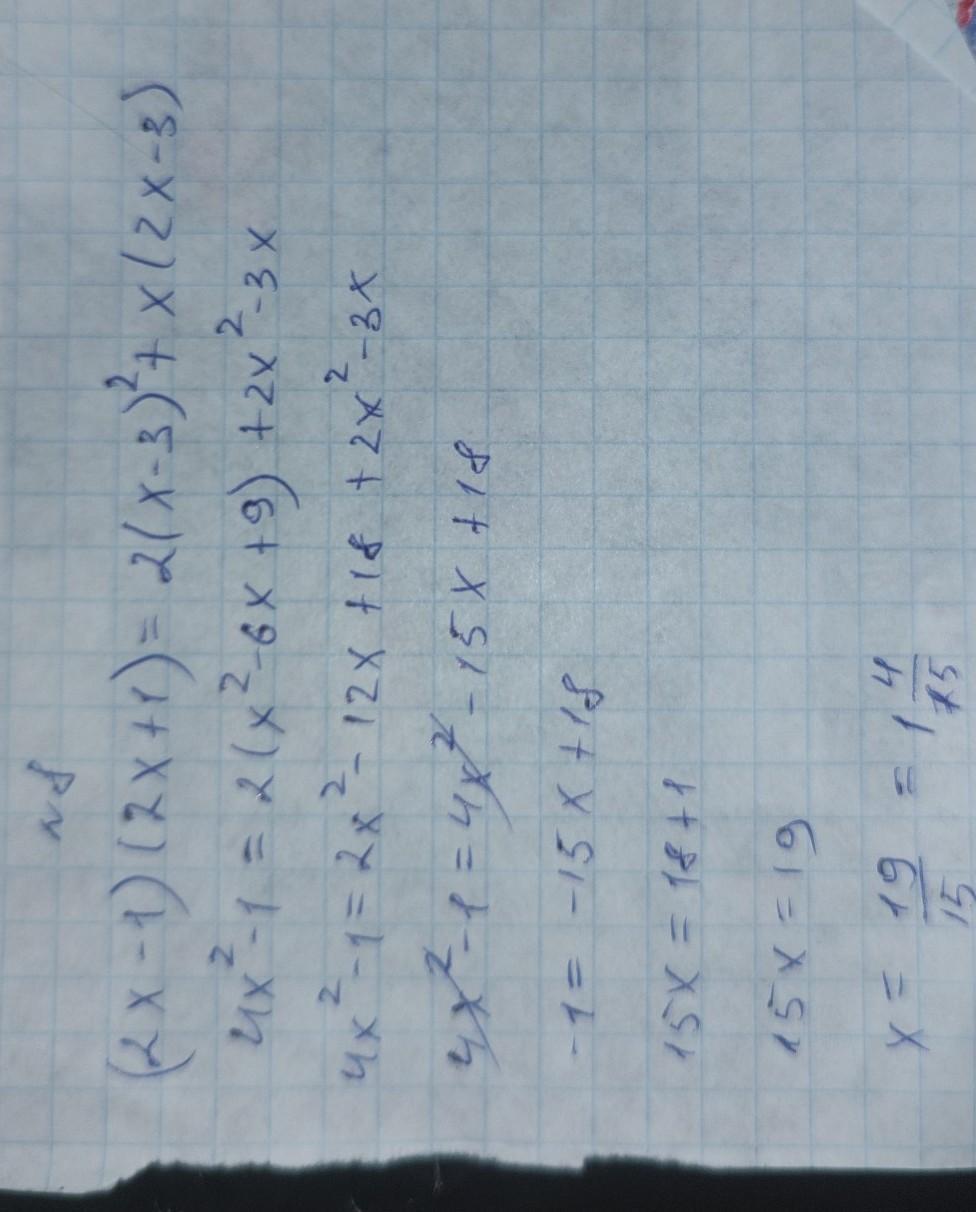 №8
(2x-1)(2x+1)=2(x-3)²+x(2x-3)
4x²-1=2(x²-6x+9)+2x²-3x
4x²-1=2x²-12x+18+2x²-3x
4x²-1=4x²-15x+18
-1=-15x+18
15x=18+1
15x=19
x=19/15=1 4/15